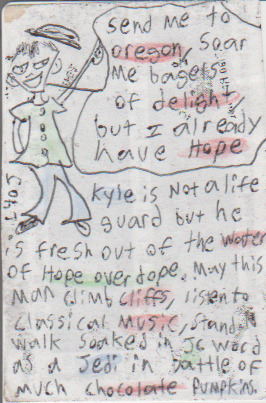 Send me to
oregon, soar
me bagels
of delight,
but I already
have Hope
Kyle is Not a life
guard but he
is fresh out of the water
of Hope over dope. May this
man climb cliffs, listen to
classical music, stand
walk soaked in JC word
as a Jedi in battle of
much chocolate pumpkins.